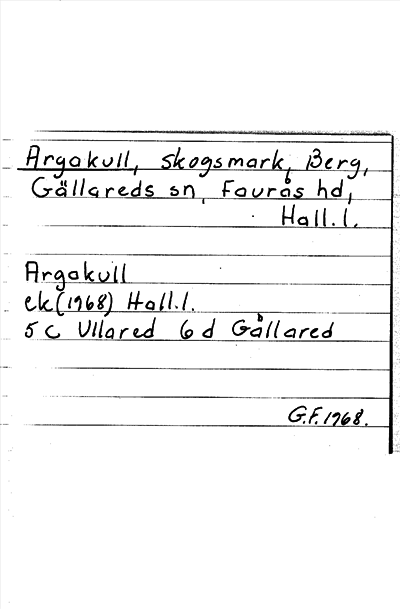 Argakull, skogsmark, Berg,
Gällareds sn, Faurås hd,
Hall.l.
Argakull
ek(1968) Hall.l.
5 c Ullared 6 d Gällared
G.F. 1968.